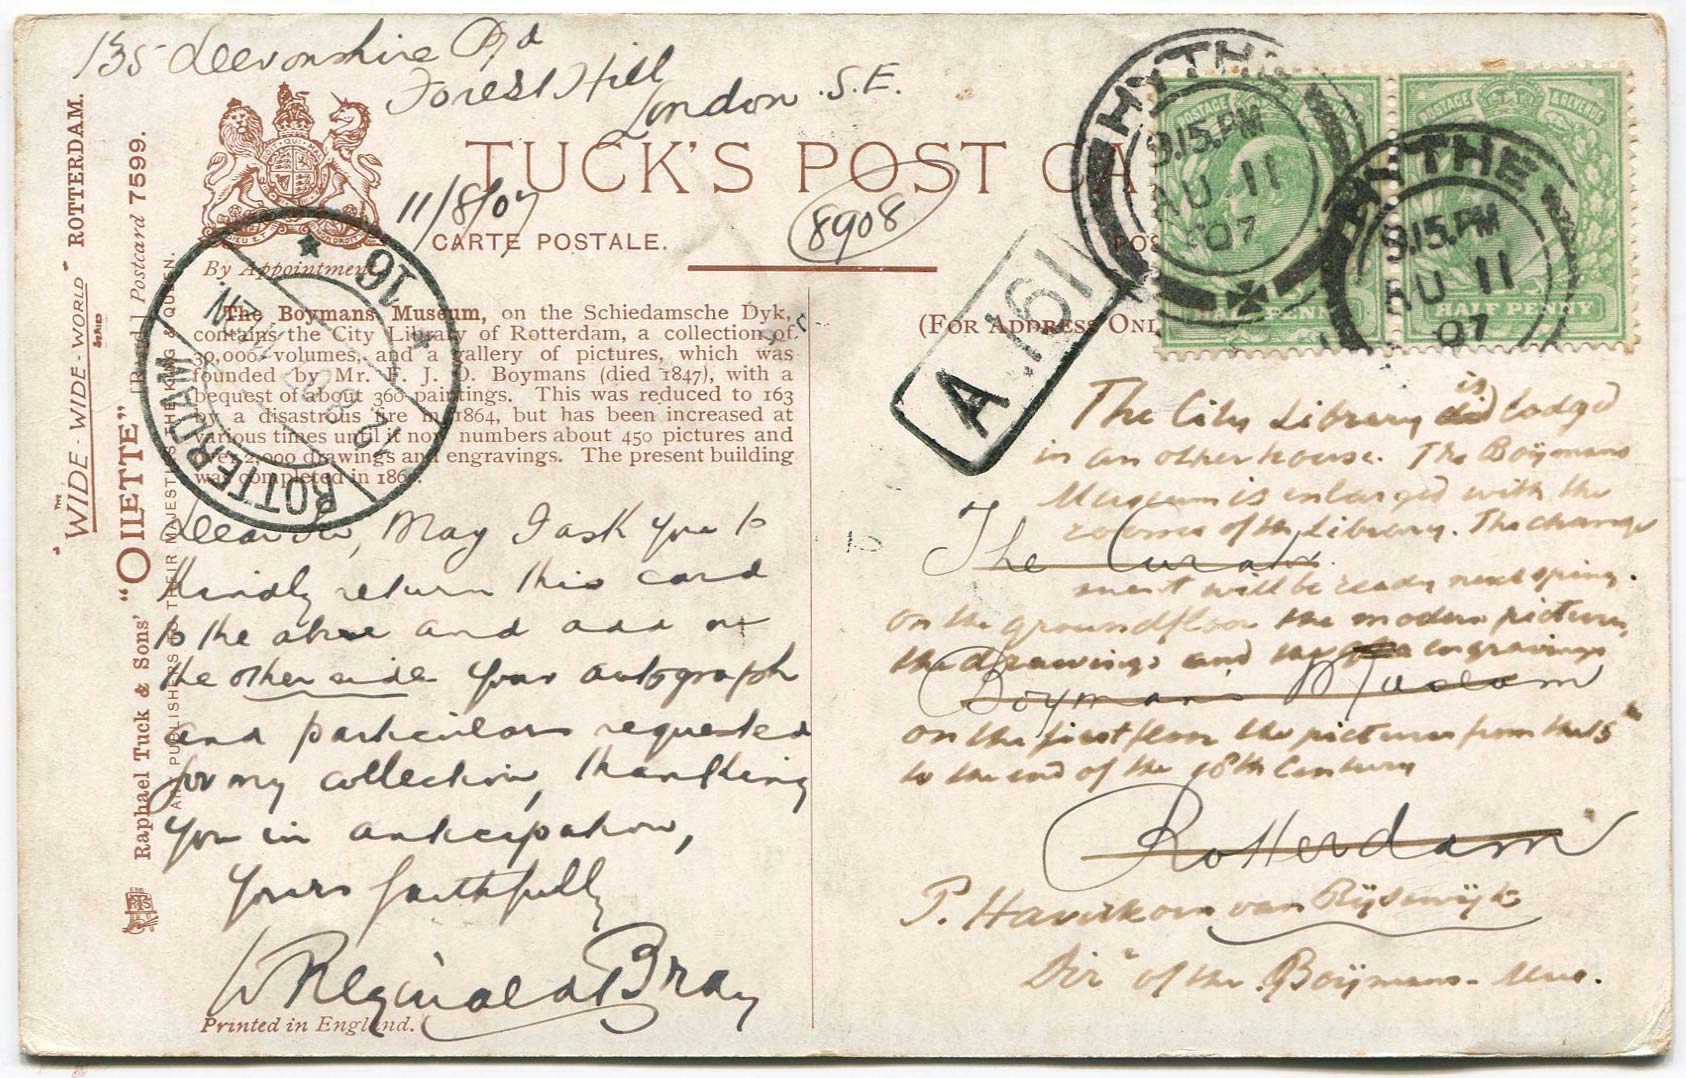 135 Devonshire Rd
Forest Hill
London S.E.
TUCK'S POST CA
11/8/07
8908
CARTE POSTALE.
By Appointment
(FOR ADDRESS ONL
"WIDE-WIDE-WORLD" ROTTERDAM.
Raphael Tuck & Sons' "OILETTE" [Regd.] Postcard 7599.
PUBLISHERS TO THEIR MAJESTIES THE KING & QUEEN.
The Boymans Museum, on the Schiedamsche Dyk,
contains the City Library of Rotterdam, a collection of
30,000 volumes, and a gallery of pictures, which was
founded by Mr. F. J. O. Boymans (died 1847), with a
bequest of about 360 paintings. This was reduced to 163
by a disastrous fire in 1864, but has been increased at
various times until it now numbers about 450 pictures and
over 2,000 drawings and engravings. The present building
was completed in 186
ROTTERDAM
16
HYTHE
9.15.PM
AU 11
07
HYTHE
9.15.PM
AU 11
07
POSTAGE & REVENUE
HALF PENNY
HALF PENNY
A.161
Dear Sir, May I ask you to
kindly return this card
to the above and add on
the other side your autograph
and particulars requested
for my collection, thanking
you in anticipation,
Yours faithfully
W Reginald Bray
Printed in England.
The City Library is lodged
in an other house. The Boÿmans
Museum is enlarged with the
rooms of the Library. The change
The Curator
ment will be ready next spring.
on the groundfloor the modern pictures,
the drawings and the engravings
Boyman's Museam
on the first floor the pictures from the 15th
to the end of the 18th Century
Rotterdam
P. Haverkorn van Rijsewijk
Dirr of the Boÿmans-Mus.